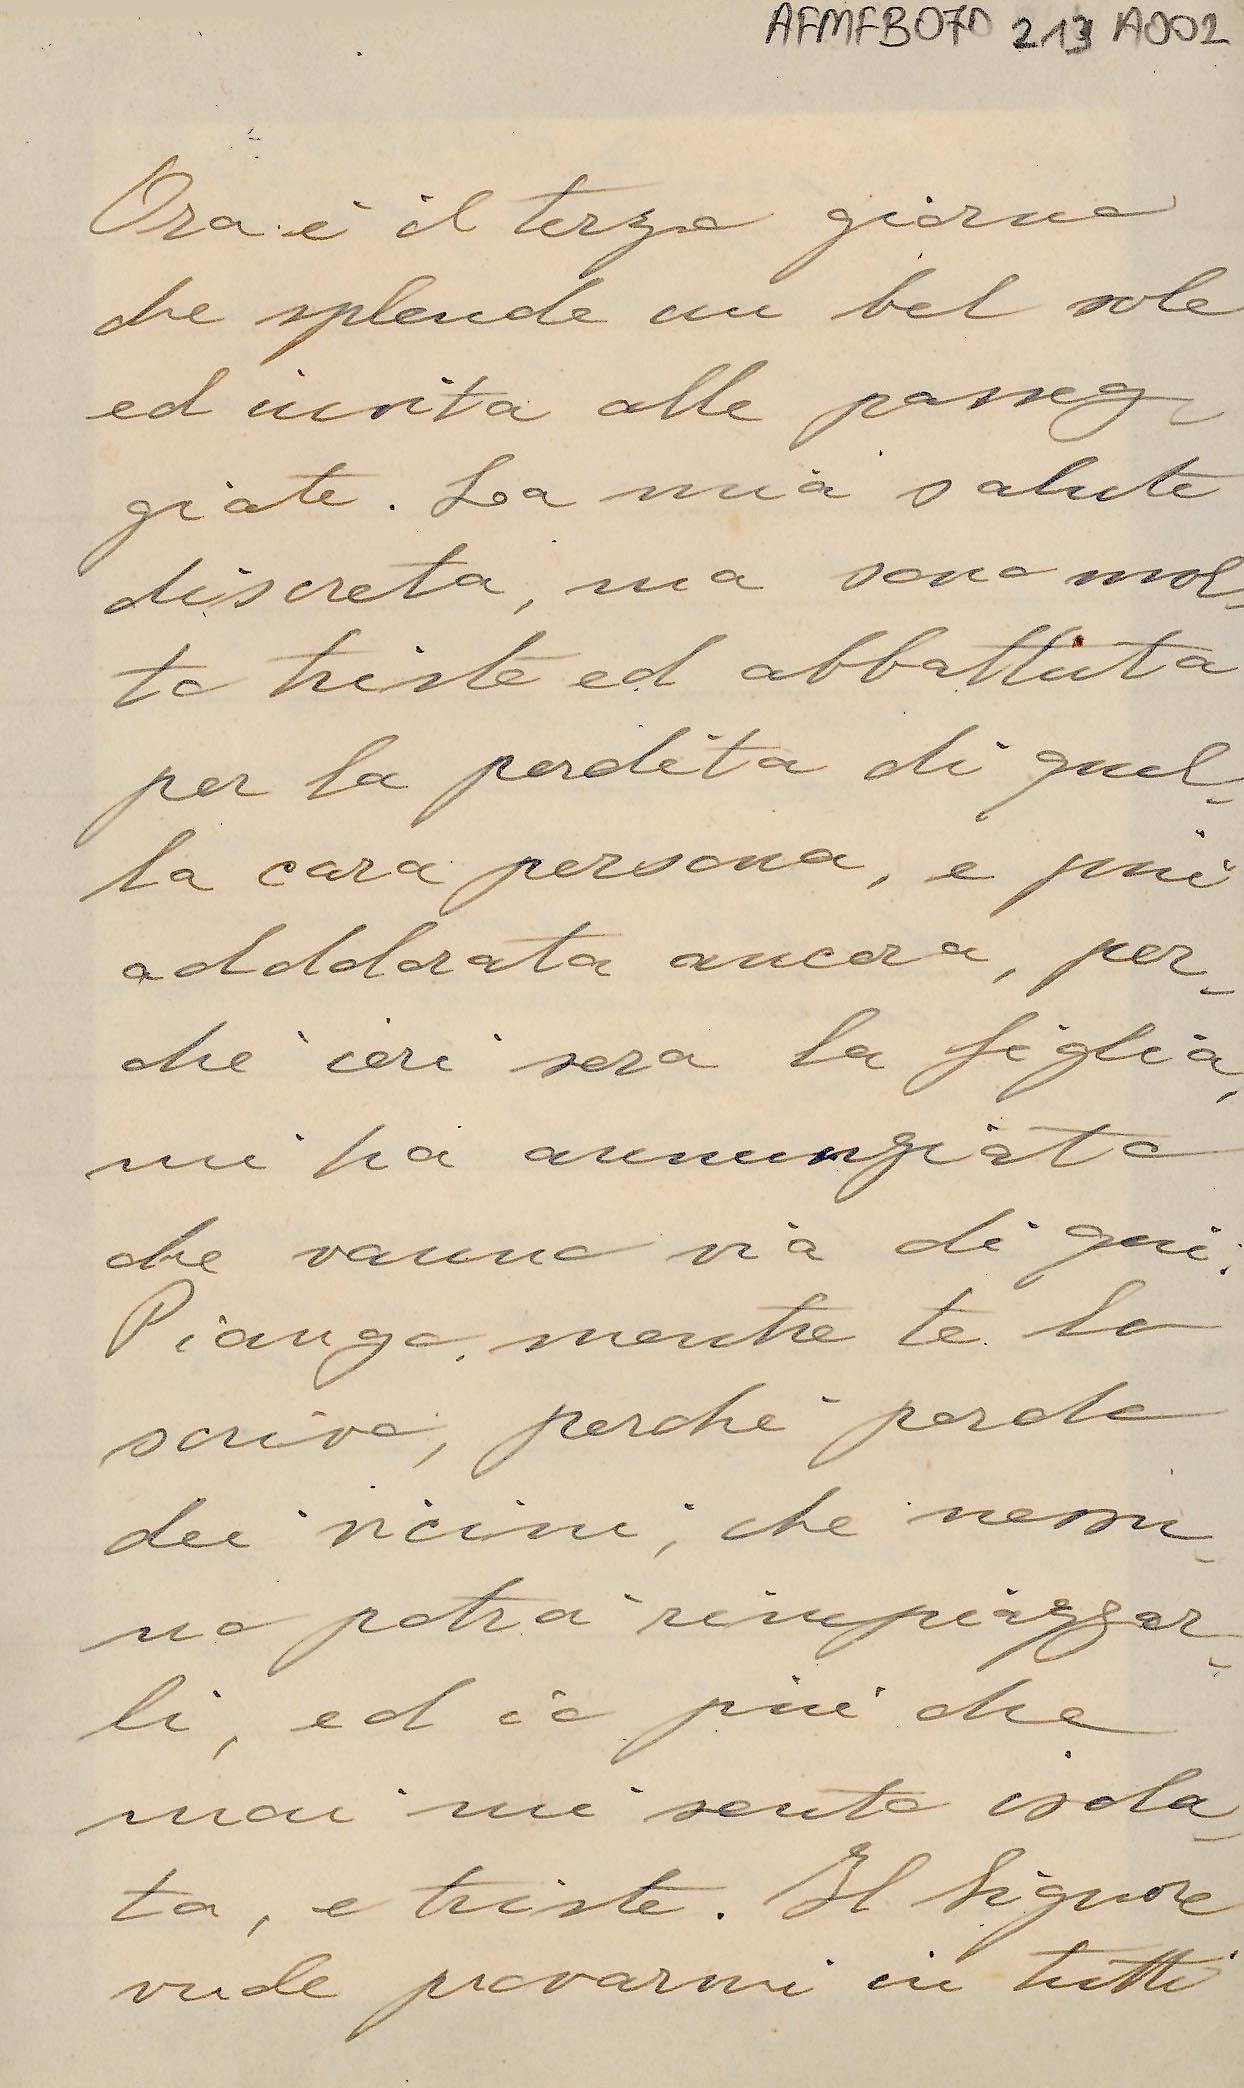 AFMFB070 213 A002
Ora è il terzo giorno
che splende un bel sole
ed invita alle passeg-
giate. La mia salute
discreta, ma sono mol-
to triste ed abbattuta
per la perdita di quel-
la cara persona, e più
addolorata ancora, per-
chè ieri sera la figlia,
mi ha annunziato
che vanno via di qui.
Piango, mentre te lo
scrivo, perchè perdo
dei vicini, che nessu-
no potrà rimpiazzar-
li, ed io più che
mai mi sento isola-
ta, e triste. Il Signore
vuole provarmi in tutti